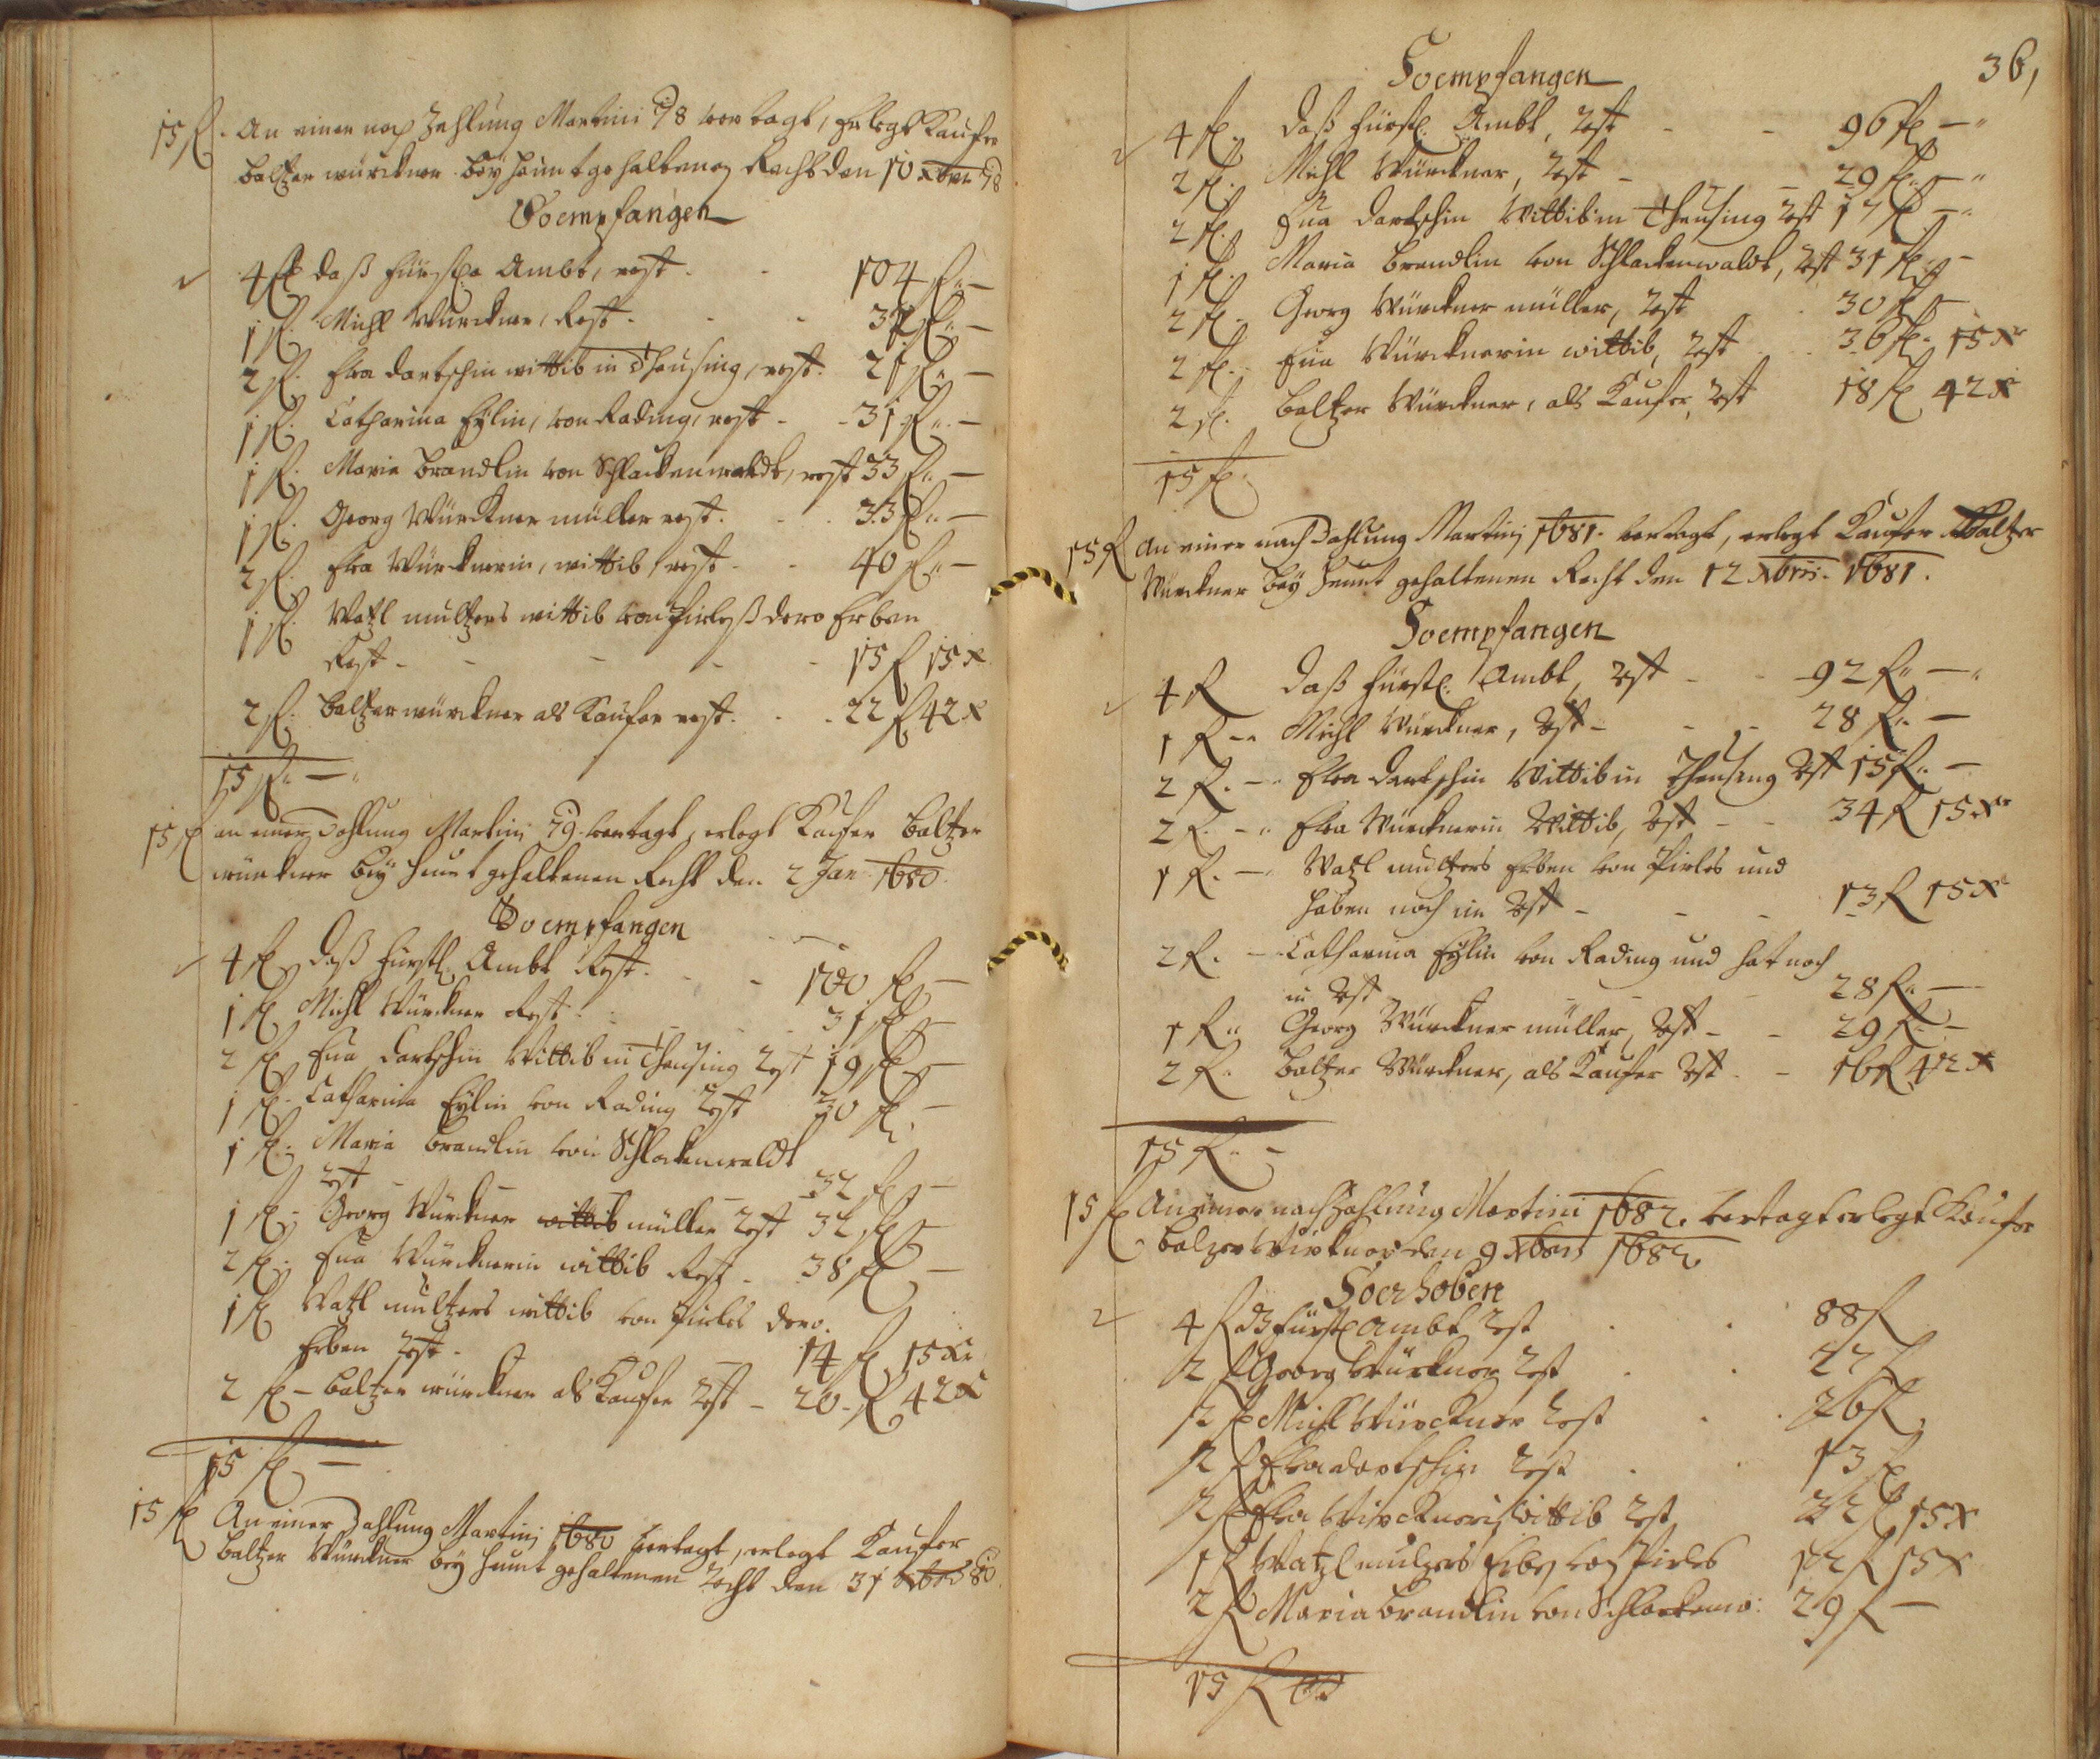 15 fl. An einer nach Zahlung Martini 78 vertagt, Erlegt Kaufer
Baltzer Würckner bey heunt gehaltenen Recht den 10 xbris 78
So empfangen
4 fl daß Fürstl. Ambt, rest. 104 fl. —
1 fl. Michl Würckner, Rest. 32 fl. —
2 fl. Eva dartschin wittib in Theusing, rest. 21 fl. —
1 fl. Catharina Eÿlin, von Rading, rest - 31 fl. —
1 fl. Maria Brandlin von Schlackenwaldt, rest 33 fl. —
1 fl. Georg Würckner müller rest. 33 fl. —
2 fl. Eva Würcknerin, wittib, rest - 40 fl. —
1 fl. Watzl multzers wittib von Pirleß dero Erben
Rest - 15 fl 15 x
2 fl. Baltzer würckner als Kaufer rest. 22 fl 42 x
15 fl. —
15 fl an einer Zahlung Martini 79. vertagt, erlegt Kaufer Baltzer
würckner beÿ heunt gehaltenen Recht den 2 Jan 1680.
So empfangen
4 fl daß Fürstl. Ambt Rest. 100 fl —
1 fl Michl Würckner Rest. 31 fl —
2 fl Eua dartschin Wittib in Theusing Rest 19 fl —
1 fl. Catharina Eÿlin von Rading Rest 30 fl. —
1 fl. Maria Brandlin von Schlackenwaldt
Rest - 32 fl —
1 fl - Georg Würckner wittib müller Rest 32 fl —
2 fl. Eua Würcknerin wittib Rest - 38 fl —
1 fl Watzl multzers wittib von Pirles dero.
Erben Rest. 14 fl 15 xr
2 fl - Baltzer würckner als Kaufer Rest - 20 fl 42 x
15 fl —
15 fl An einer Zahlung Martinj 1680 vertagt, erlegt Kaufer
Baltzer Würckner beÿ heunt gehaltenen Recht den 31 xbris 80.
36,
So empfangen
4 fl. Daß Fürstl. Ambt, Rest - 96 fl —
2 fl. Michl Würckner, Rest - 29 fl. —
2 fl. Eua dartschin Wittib in Theusing Rest 17 fl —
1 fl. Maria Brandlin von Schlackenwaldt, Rest 31 fl. —
2 fl. Georg Würckner müller, Rest 30 fl —
2 fl. Eua Würcknerin wittib, Rest 36 fl. 15 xr
2 fl. Baltzer Würckner, als Kaufer, Rest 18 fl 42 x
15 fl.
15 fl An einer nach Zahlung Martinj 1681. vertagt, erlegt Kaufer Baltzer
Würckner beÿ heunt gehaltenen Recht den 12 Xbris. 1681.
So empfangen
4 fl Daß Fürstl. Ambt, Rest - 92 fl. —
1 fl - Michl Würckner, Rest - 28 fl. —
2 fl. — Eva dartschin Wittib in Theusing Rest 15 fl. —
2 fl. — Eva Würcknerin Wittib, Rest - 34 fl 15 xr
1 fl. — Watzl multzers Erben von Pirles und
haben noch im Rest - 13 fl 15 xr
2 fl. — Catharina Eÿlin von Rading und hat noch
in Rest - 28 fl. —
1 fl. Georg Würckner müller, Rest - 29 fl. —
2 fl. Baltzer Würckner, als Kaufer Rest - 16 fl 42 x
15 fl. —
15 fl An einer nach Zahlung Martini 1682. vertagt erlegt Kaufer
Balzer Würkner den 9 xbris 1682
So erhoben
4 fl dz Fürstl Ambt Rest 88 fl
2 fl Georg Würkner Rest 27 fl
2 fl Michl Würckner Rest 26 fl
2 fl Eva dartschin Rest 13 fl
2 fl Eva Würcknerin Wittib Rest 32 fl 15 x
1 fl Watzl mulzers Erben von Pirles 12 fl 15 x
2 fl Maria Brandlin von Schlackenw: 29 fl —
15 fl